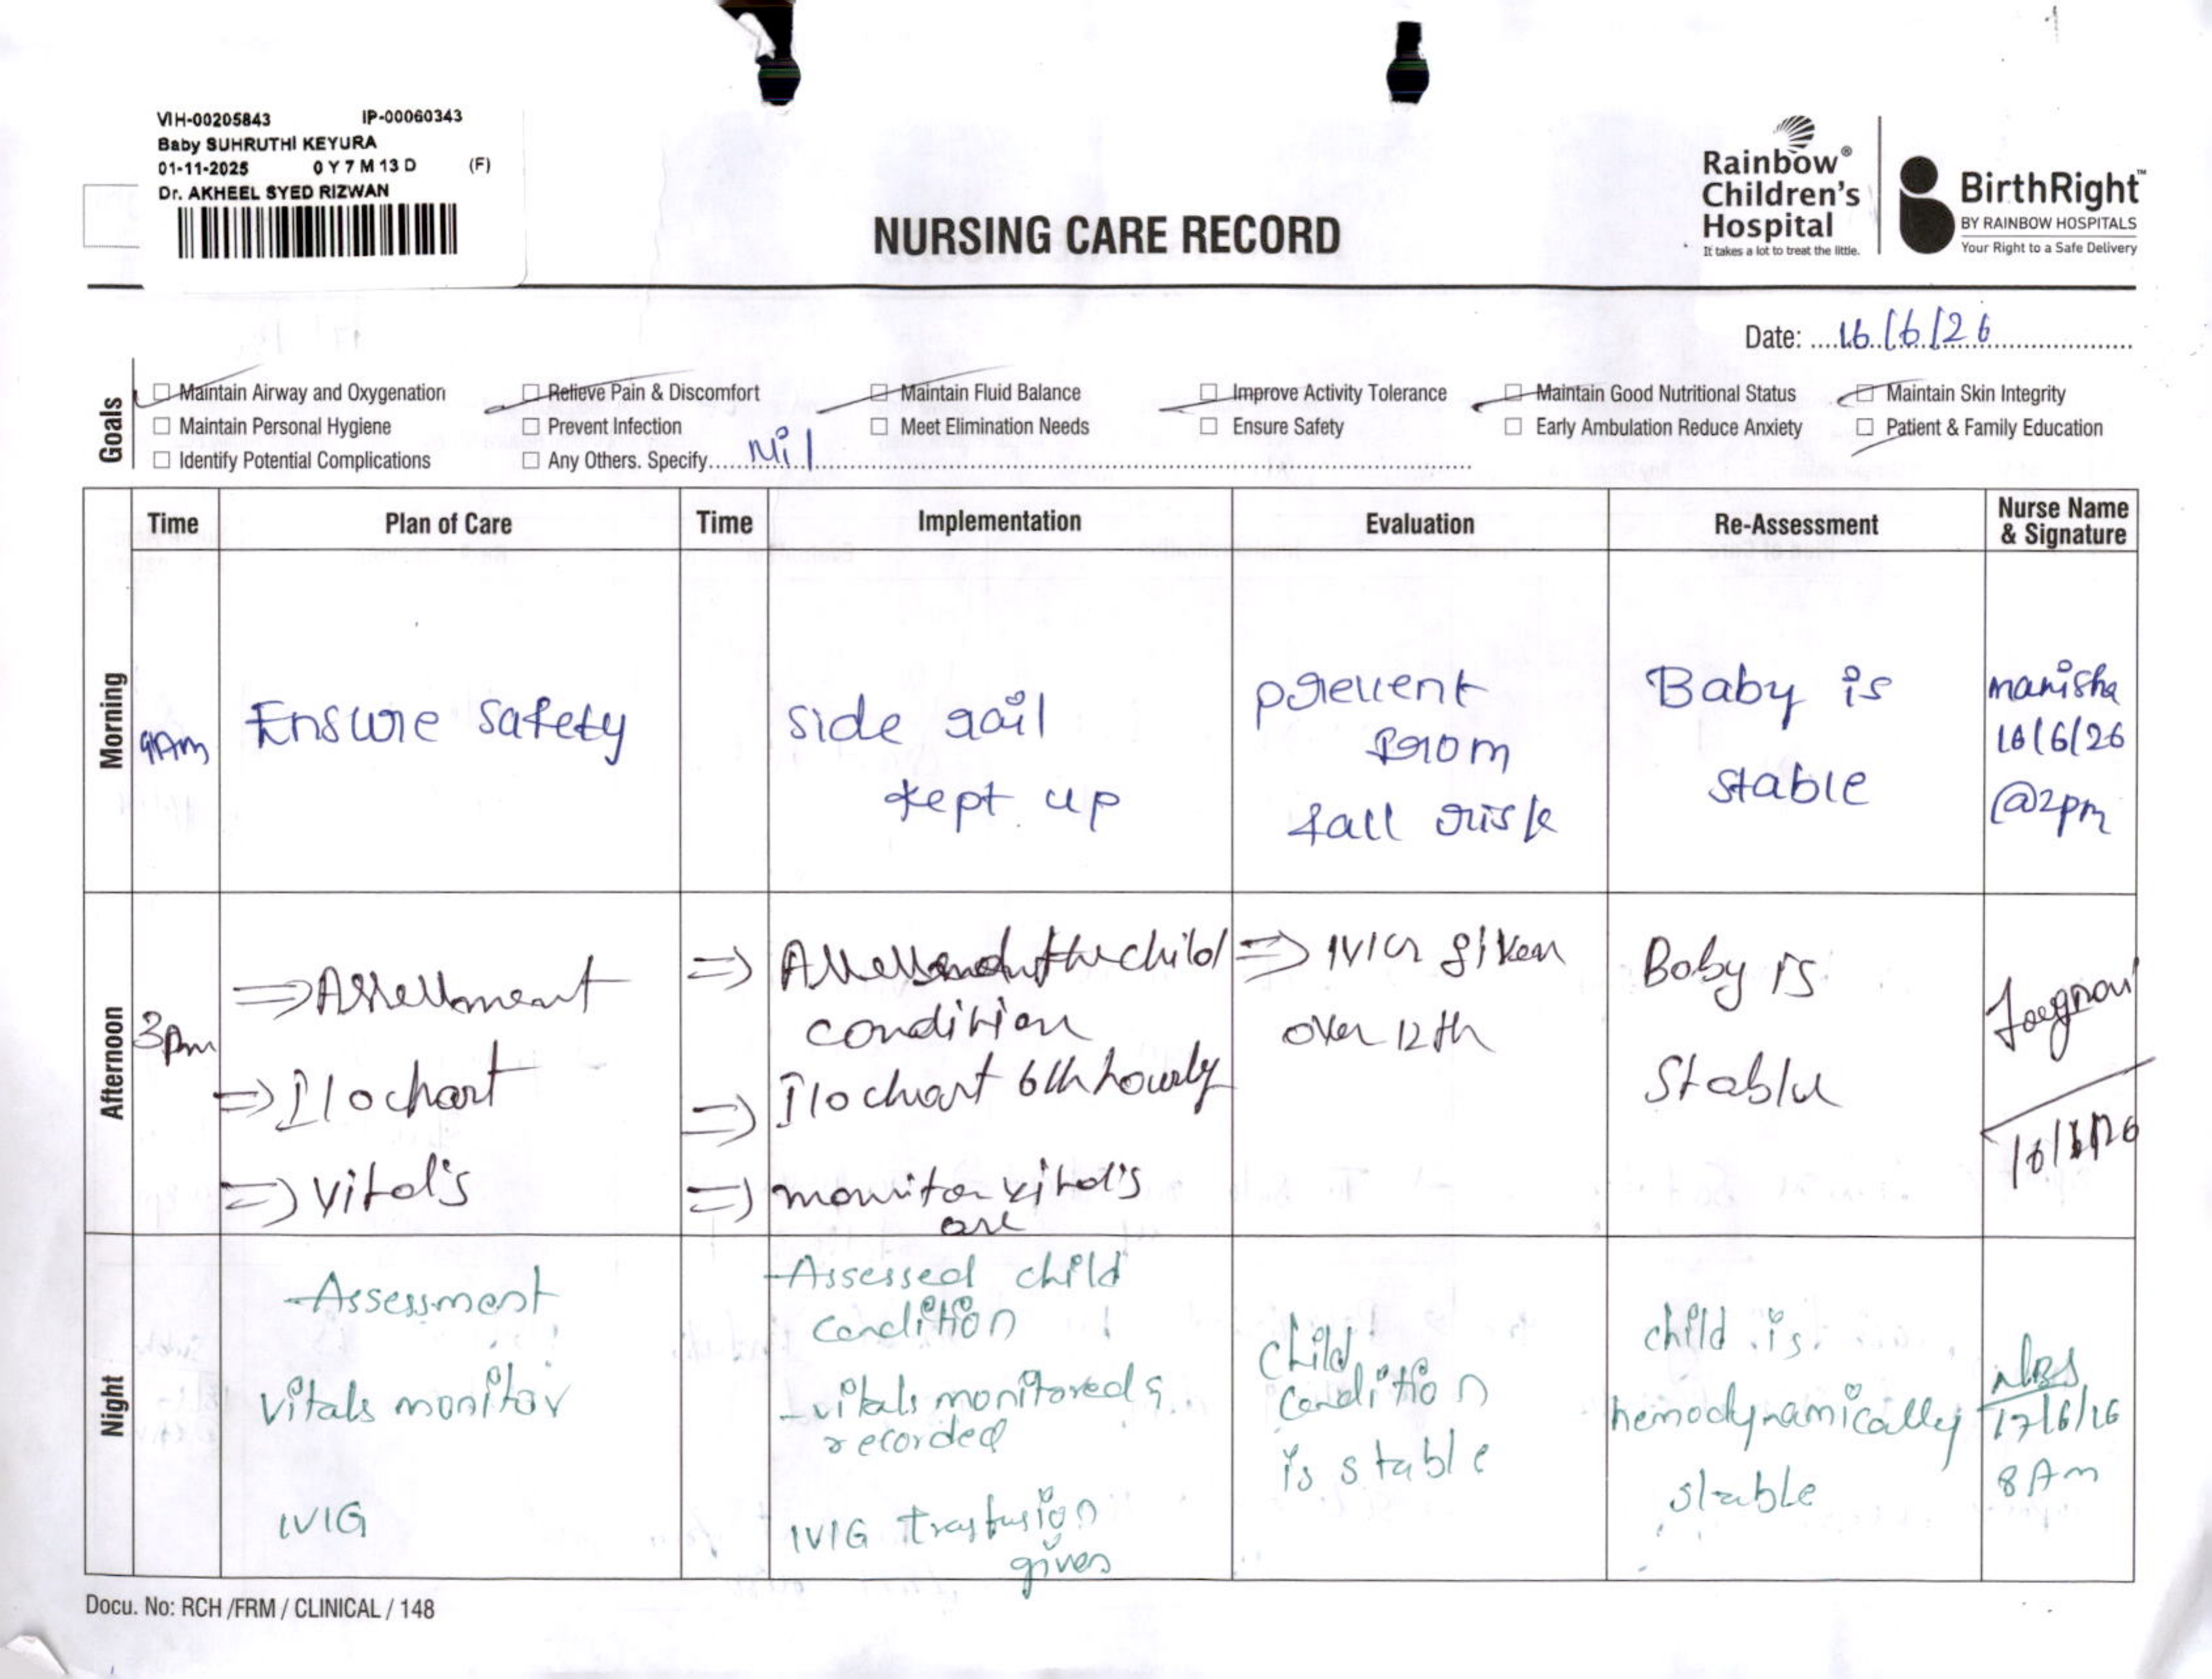 VIH-00205843 IP-00060343
Baby SUHRUTHI KEYURA
01-11-2025 0 Y 7 M 13 D (F)
Dr. AKHEEL SYED RIZWAN
NURSING CARE RECORD
Rainbow®
Children's
Hospital
It takes a lot to treat the little.
BirthRight™
BY RAINBOW HOSPITALS
Your Right to a Safe Delivery
Date: 16/6/26
Goals
Maintain Airway and Oxygenation Relieve Pain & Discomfort Maintain Fluid Balance Improve Activity Tolerance Maintain Good Nutritional Status Maintain Skin Integrity
Maintain Personal Hygiene Prevent Infection Meet Elimination Needs Ensure Safety Early Ambulation Reduce Anxiety Patient & Family Education
Identify Potential Complications Any Others. Specify Nil
Time Plan of Care Time Implementation Evaluation Re-Assessment Nurse Name & Signature
Morning
9Am
Ensure safety
side rail
kept up
prevent
from
fall risk
Baby is
stable
manisha
16/6/26
@2pm
Afternoon
3pm
⇒ Assessment
⇒ I/o chart
⇒ vital's
⇒ the child
condition
⇒ I/o chart 6th hourly
⇒ monitor vital's
are
⇒ IVIG given
over 12th
Baby is
Stable
16/6/26
Night
- Assessment
vitals monitor
IVIG
- Assessed child
condition
- vitals monitored &
recorded
IVIG trasfusion
given
child
condition
is stable
child is
hemodynamically
stable
17/6/26
8 Am
Docu. No: RCH /FRM / CLINICAL / 148